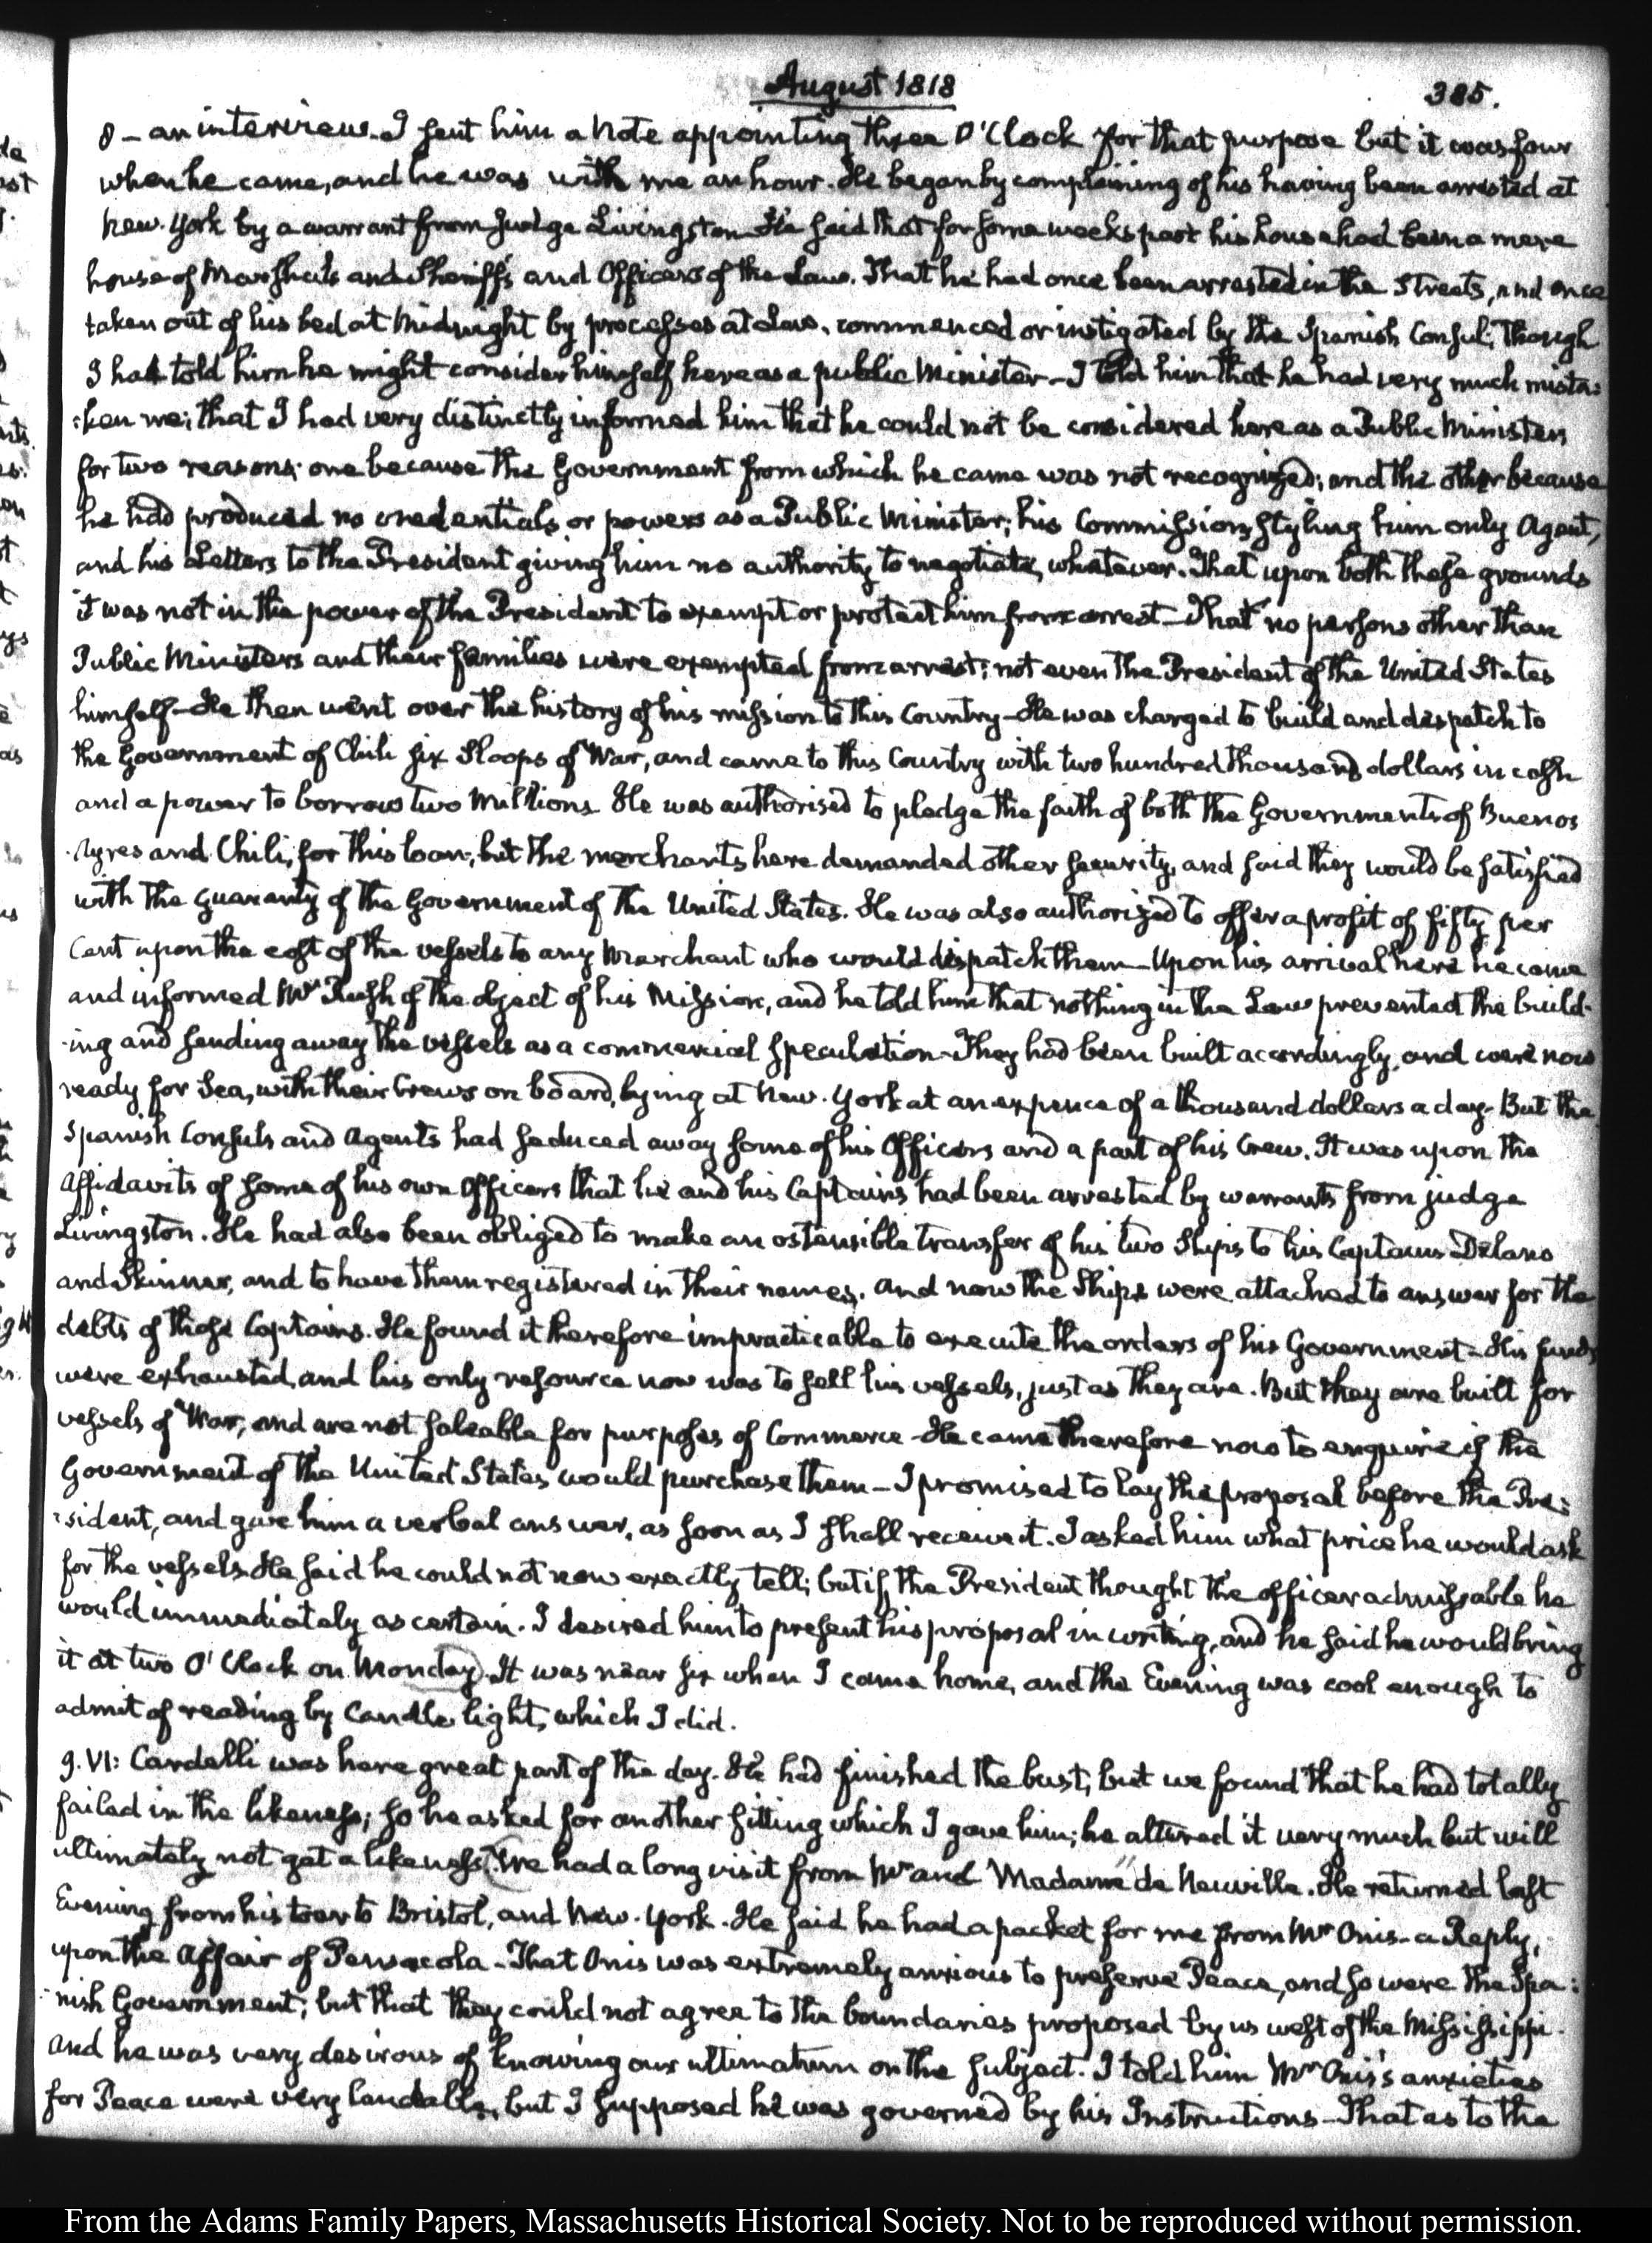 August 1818
385.
8 - an interview. I sent him a Note appointing three O'Clock for that purpose but it was four
when he came, and he was with me an hour. He began by complaining of his having been arrested at
New-York by a warrant from Judge Livingston. He said that for some weeks past his house had been a mere
house of Marshals and Sheriffs and Officers of the Law. That he had once been arrested in the Streets, and once
taken out of his bed at Midnight by processes at Law, commenced or instigated by the Spanish Consul; though
I had told him he might consider himself here as a public Minister - I told him that he had very much mista:
:ken me; that I had very distinctly informed him that he could not be considered here as a Public Minister,
for two reasons; one because the Government from which he came was not recognized; and the other because
he had produced no credentials or powers as a Public Minister; his Commission styling him only Agent,
and his Letters to the President giving him no authority to negotiate, whatever. That upon both these grounds
it was not in the power of the President to exempt or protect him from arrest - That no persons other than
Public Ministers and their families were exempted from arrest; not even the President of the United States
himself - He then went over the history of his mission to this Country - He was charged to build and despatch to
the Government of Chili six Sloops of War, and came to this Country with two hundred thousand dollars in cash
and a power to borrow two Millions. He was authorised to pledge the faith of both the Governments of Buenos
Ayres and Chili, for this loan; but the merchants here demanded other security, and said they would be satisfied
with the guaranty of the Government of the United States. He was also authorized to offer a profit of fifty per
Cent upon the cost of the vessels to any Merchant who would dispatch them - Upon his arrival here he came
and informed Mr. Rush of the object of his Mission, and he told him that nothing in the Law prevented the build-
-ing and sending away the vessels as a commercial speculation - They had been built accordingly, and were now
ready for Sea, with their Crews on board, lying at New-York at an expence of a thousand dollars a day - But the
Spanish Consuls and Agents had seduced away some of his Officers and a part of his Crew. It was upon the
Affidavits of some of his own Officers that he and his Captains had been arrested by warrants from judge
Livingston. He had also been obliged to make an ostensible transfer of his two Ships to his Captains Delano
and Skinner, and to have them registered in their names. And now the Ships were attached to answer for the
debts of those Captains. He found it therefore impracticable to execute the orders of his Government - His funds
were exhausted, and his only resource now was to sell his vessels, just as they are. But they are built for
vessels of War, and are not saleable for purposes of Commerce - He came therefore now to enquire if the
Government of the United States would purchase them - I promised to lay the proposal before the Pre:
:sident, and give him a verbal answer, as soon as I shall receive it. I asked him what price he would ask
for the vessels. He said he could not now exactly tell; but if the President thought the officer admissable he
would immediately ascertain. I desired him to present his proposal in writing, and he said he would bring
it at two O'Clock on Monday. It was near six when I came home, and the Evening was cool enough to
admit of reading by Candle light, which I did.
9. VI: Cardelli was here great part of the day. He had finished the bust; but we found that he had totally
failed in the likeness; so he asked for another sitting which I gave him; he altered it very much but will
ultimately not get a likeness. We had a long visit from Mr. and Madame de Neuville. He returned last
Evening from his tour to Bristol, and New-York. He said he had a packet for me from Mr Onis - a Reply,
upon the Affair of Pensacola - That Onis was extremely anxious to preserve Peace, and so were the Spa:
:nish Government; but that they could not agree to the boundaries proposed by us west of the Mississippi.
And he was very desirous of knowing our ultimatum on the subject. I told him Mr Onis's anxieties
for Peace were very laudable, but I supposed he was governed by his Instructions - That as to the
From the Adams Family Papers, Massachusetts Historical Society. Not to be reproduced without permission.